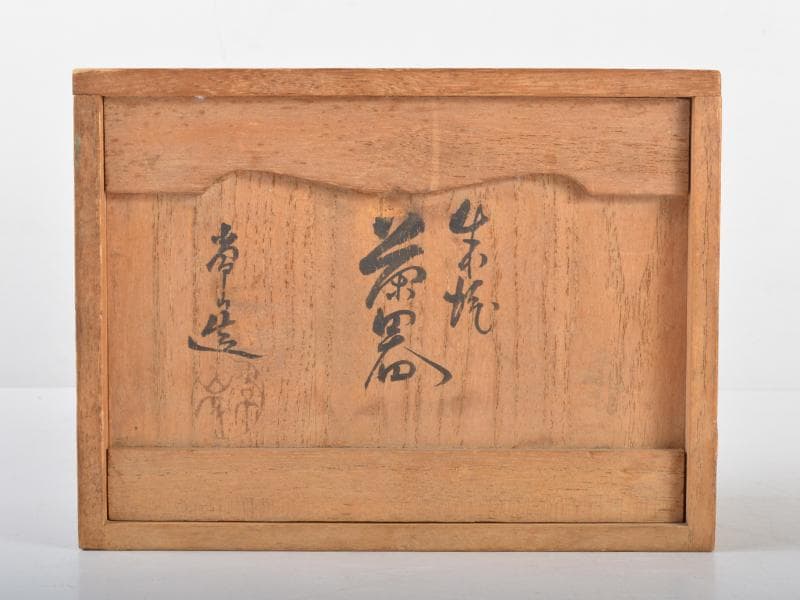 朱焼
茶器
常山造